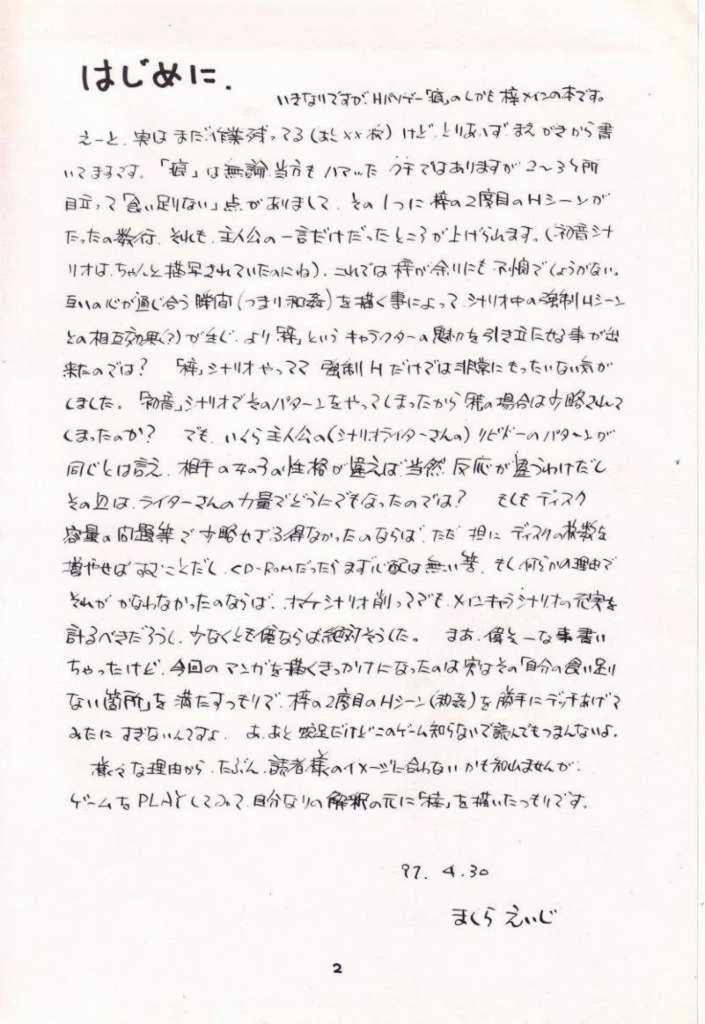 はじめに.
いきなりですが、Hパソゲー「痕」のしかも 梓メインの本です。
えーと、実は まだ作業残ってる(あと××枚) けど、とりあいず まえがきから書
いてますです。「痕」は無論当方も ハマった クチではありますが 2〜3ヶ所
目立って「食い足りない」点がありまして、その1つに 梓の2度目のHシーンが
たったの数行、それも、主人公の一言だけだったところが上げられます。(初音シナ
リオは、ちゃんと描写されていたのにね)、これでは梓が余りにも不憫でしょうがない。
互いの心が通じ合う瞬間(つまり和姦)を描く事によって、シナリオ中の強制Hシーン
との相互効果(?)が生じ、より「梓」というキャラクターの魅力を引き立たせる事が出
来たのでは? 「梓」シナリオやってて 強制Hだけでは非常にもったいない気が
しました。「初音」シナリオでそのパターンをやってしまったから 梓の場合は少略されて
しまったのか? でも、いくら主人公の(シナリオライターさんの)リビドーのパターンが
同じとは言え、相手の女の子の性格が違えば当然、反応が違うわけだし
その辺は、ライターさんの力量でどうにでもなったのでは? もしも ディスク
容量の問題等で少略せざる得なかったのならば、ただ 担に ディスクの枚数を
増やせば すむことだし、CD-ROMだったらまず心配は無い筈、もし何らかの理由で
それが かなわなかったのならば、オマケシナリオ削ってでも、メインキャラシナリオの充実を
計るべきだろうし、少なくとも俺ならば絶対そうした。 まあ、偉そーな事書い
ちゃったけど、今回の マンガを描くきっかけになったのは 実はその「自分の食い足り
ない箇所」を 満たすつもりで、梓の2度目のHシーン(和姦)を 勝手にデッチあげて
みたに すぎないんですよ、 あ、あと 蛇足だけどこのゲーム知らないで読んでもつまんないよ。
様々な理由から、たぶん、読者様のイメージに合わないかも知れませんが、
ゲームをPLAYしてみて、自分なりの解釈の元に「梓」を描いたつもりです。
97. 4.30
まくら えいじ
2